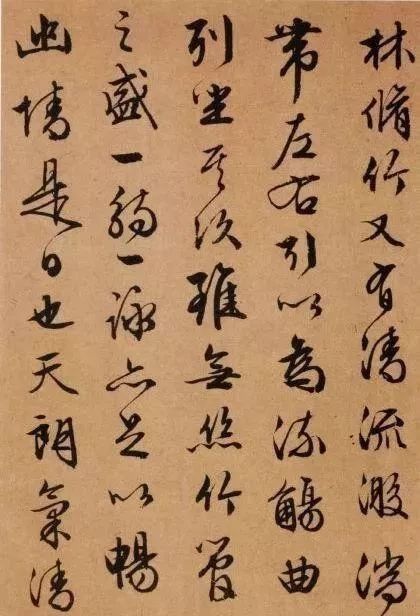 林脩竹又有清流激湍
帶左右引以為流觴曲
列坐其次雖無絲竹管
之盛一觴一詠亦足以暢
幽情是日也天朗氣清